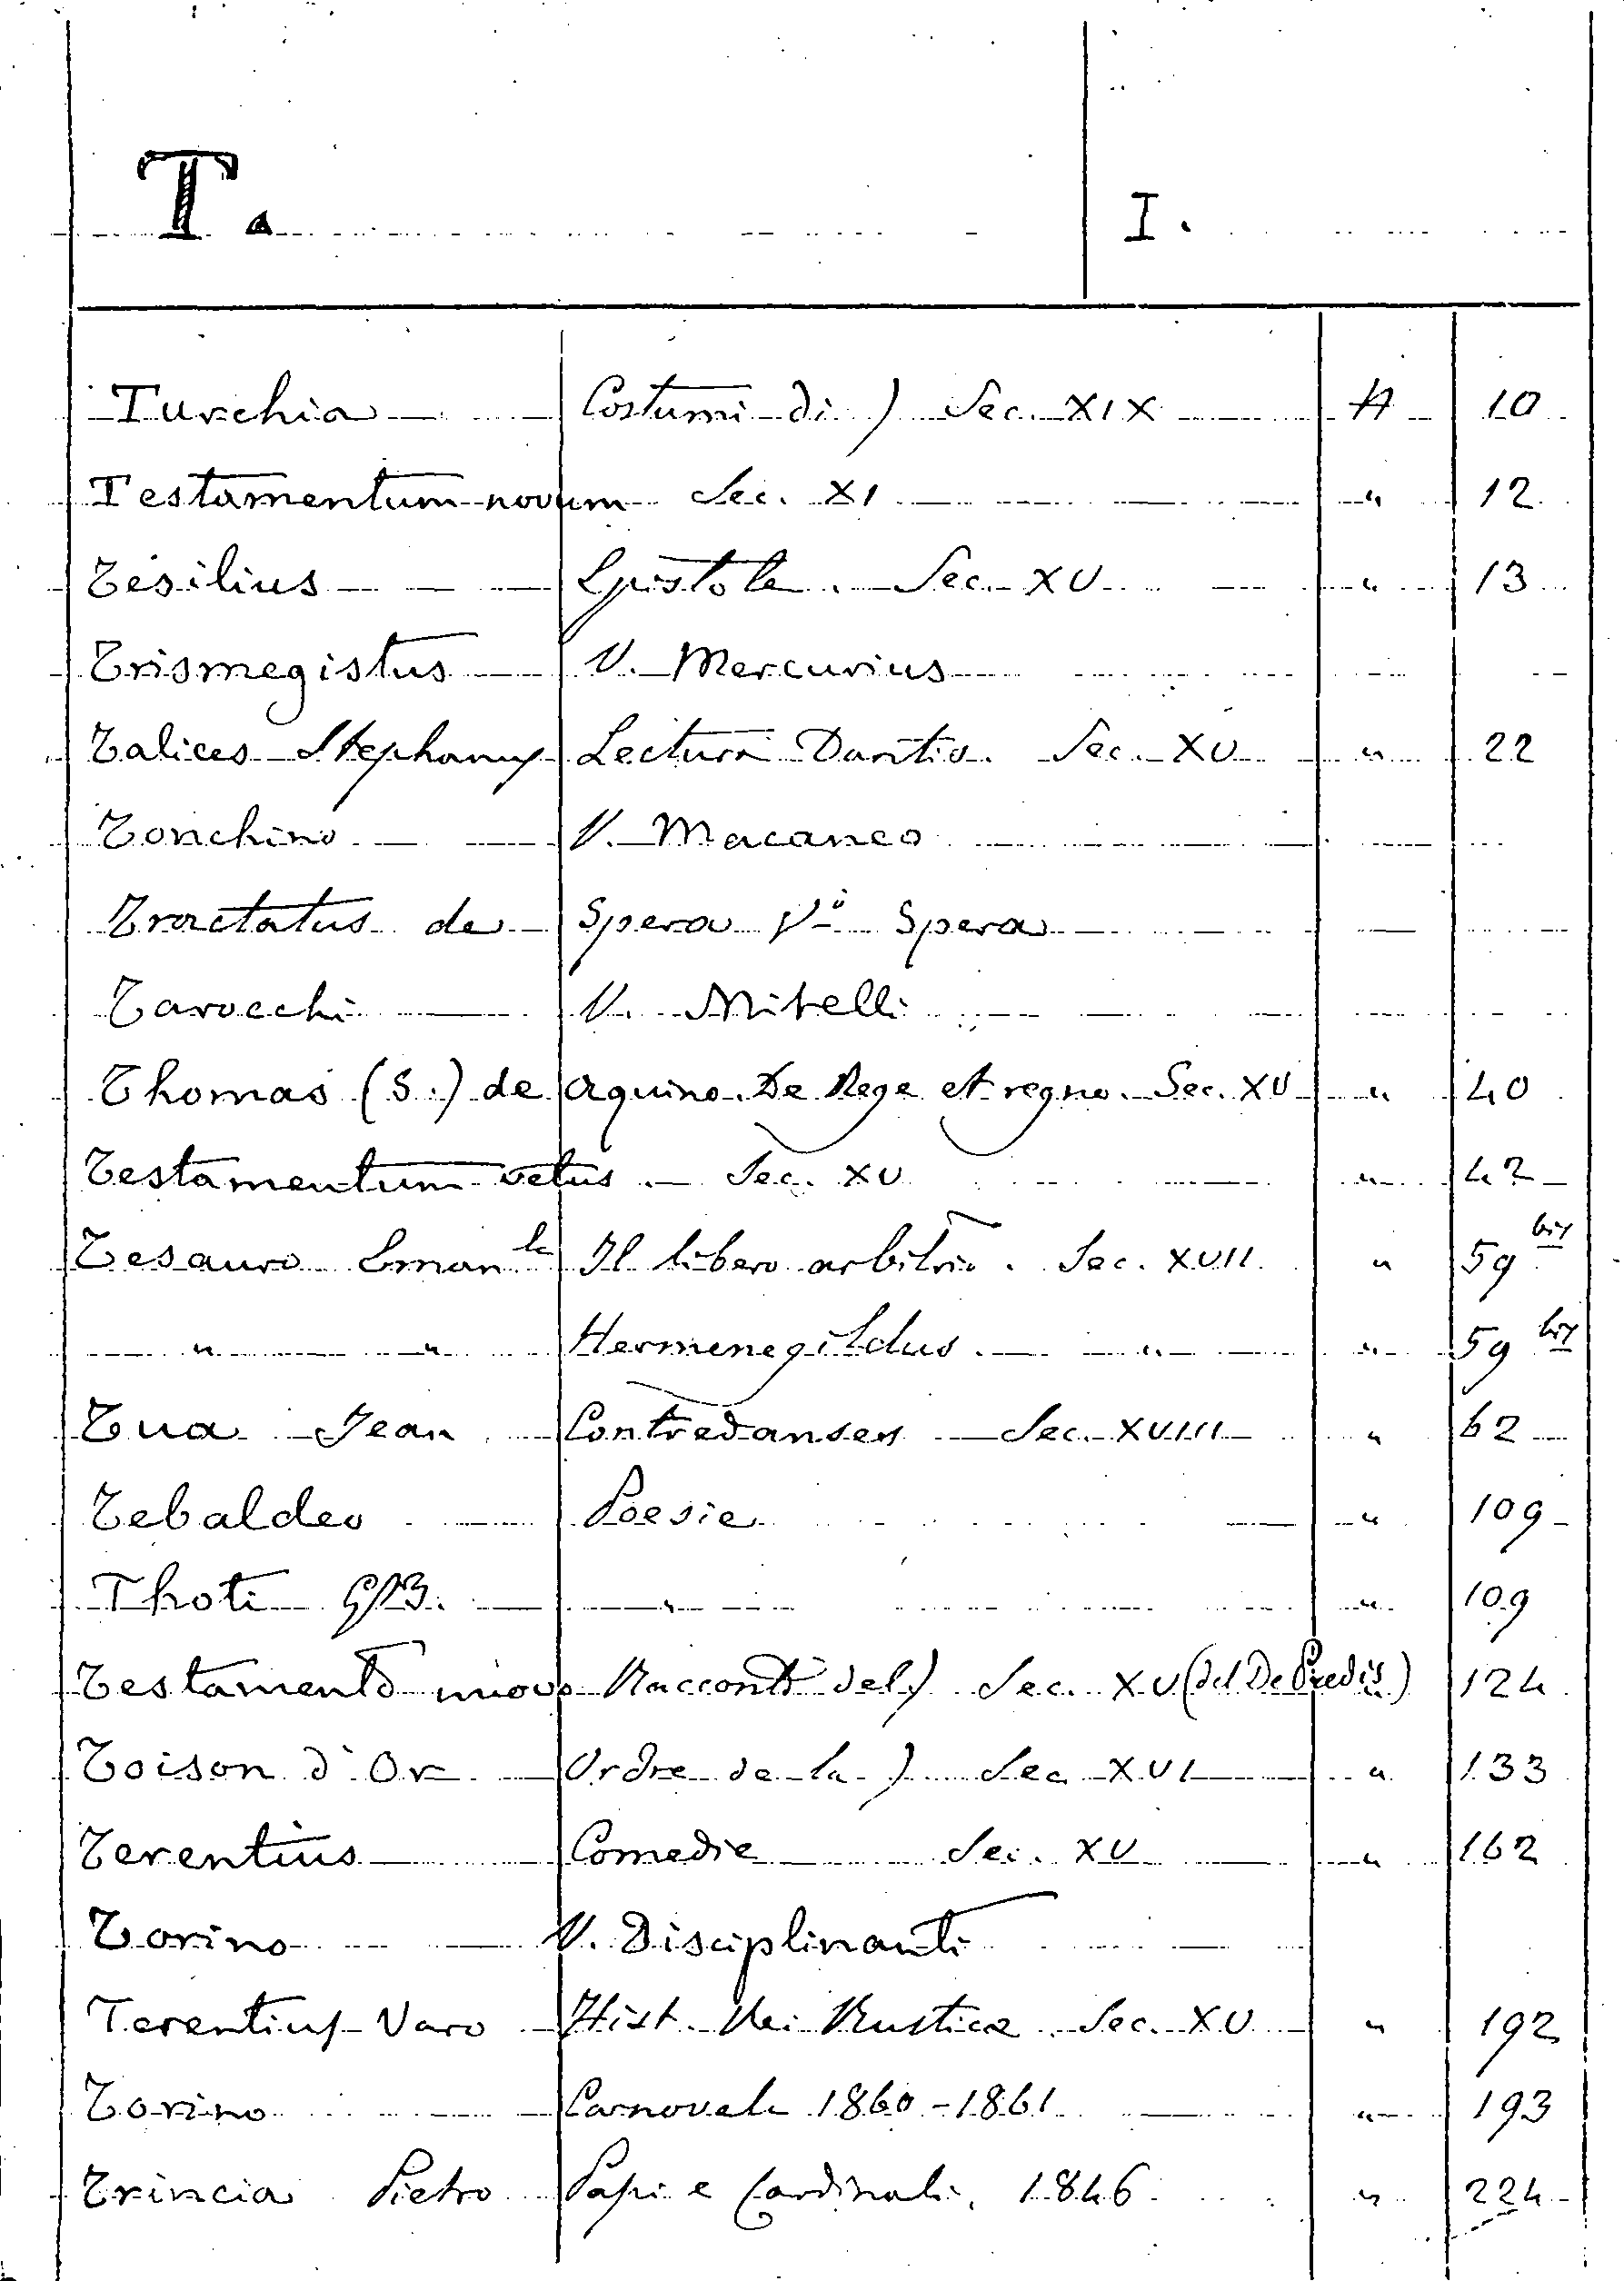 T. I.
Turchia Costumi di) Sec. XIX A 10
Testamentum novum Sec. XI " 12
Tesilius Epistole. Sec. XV " 13
Trismegistus V. Mercurius
Talices Stephany Lectura Dantis. Sec. XV " 22
Tonchino V. Macaneo
Tractatus de Spera Vi Spera
Tarocchi V. Mitelli
Thomas (S.) de Aquino. De Rege et regno. Sec. XV " 40
Testamentum vetus. Sec. XV " 42
Tesauro Emanle Il libero arbitrio. Sec. XVII " 59 bis
" " Hermenegildus. " " 59 bis
Tua Jean Contredanses Sec. XVIII " 62
Tebaldeo Poesie " 109
Thoti GB. " " 109
Testamento nuovo Racconti del) Sec. XV (del De Predis) 124
Toison d'Or Ordre de la) Sec. XVI " 133
Terentius Comedie Sec. XV " 162
Torino V. Disciplinanti
Terentius Varo Hist. Rei Rusticae Sec. XV " 192
Torino Carnovale 1860-1861 " 193
Trincia Pietro Papi e Cardinali. 1846 " 224